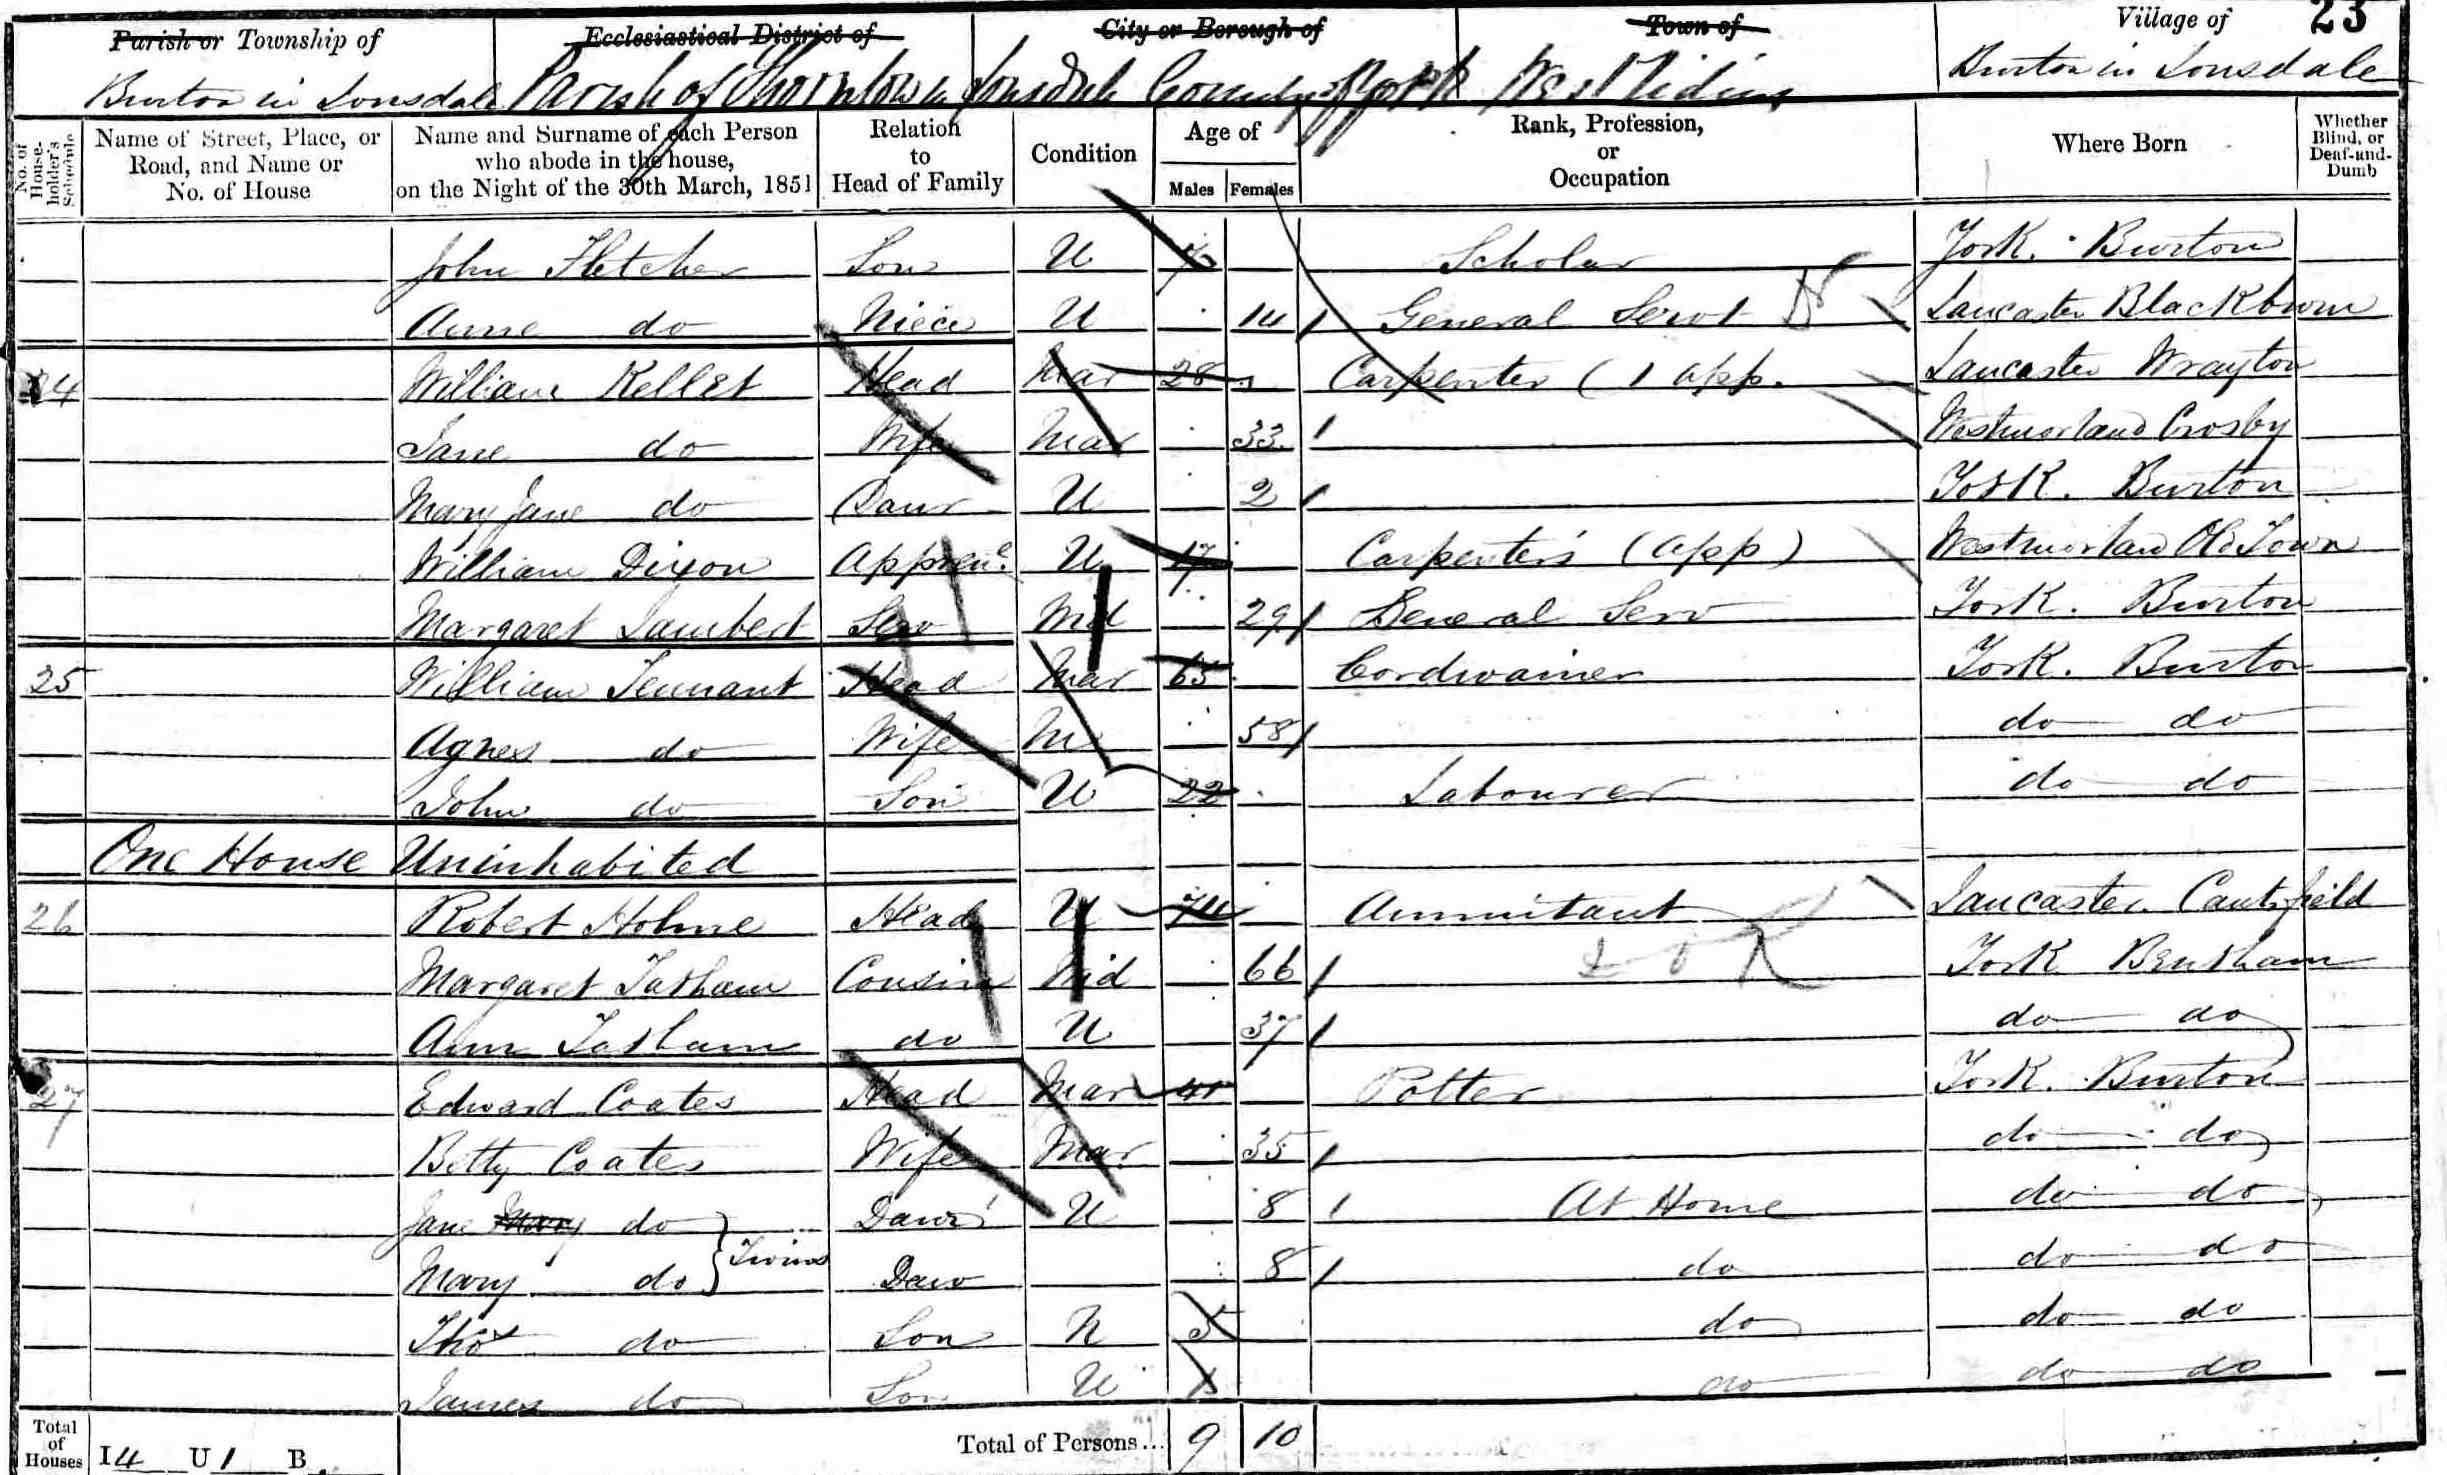 Parish or Township of Ecclesiastical District of City or Borough of Town of Village of 23
Burton in Lonsdale Parish of Thornton in Lonsdale County of York West Riding Burton in Lonsdale
No. of House-holder's Schedule
Name of Street, Place, or Road, and Name or No. of House
Name and Surname of each Person who abode in the house, on the Night of the 30th March, 1851
Relation to Head of Family
Condition
Age of
Males Females
Rank, Profession, or Occupation
Where Born
Whether Blind, or Deaf-and-Dumb
John Fletcher Son U 7 Scholar York. Burton
Anne do Niece U 14 General Servt Lancaster Blackburn
24 William Kellet Head Mar 28 Carpenter (1 app. Lancaster Wrayton
Jane do Wife Mar 33 Westmorland Crosby
Mary Jane do Daur U 2 York. Burton
William Dixon Apprence U 17 Carpenter's (app) Westmorland Old Town
Margaret Lambert Serv Wid 29 General Serv York. Burton
25 William Tennant Head Mar 65 Cordwainer York. Burton
Agnes do Wife M 58 do do
John do Son U 22 Labourer do do
One House Uninhabited
26 Robert Holme Head U 74 Annuitant Lancaster. Cantsfield
Margaret Tatham Cousin Wid 66 York Bentham
Ann Tatham do U 37 do do
27 Edward Coates Head Mar 41 Potter York. Burton
Betty Coates Wife Mar. 35 do do
Jane Mary do Daur U 8 At Home do do
Mary do } Twins Daur 8 do do do
Thos do Son U 5 do do do
James do Son U do do do
Total of Houses I 4 U 1 B Total of Persons... 9 10